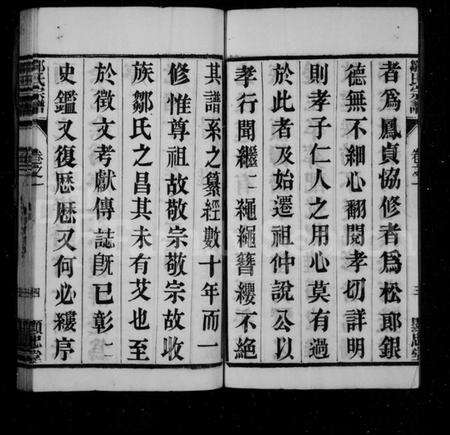 者爲鳳貞協修者爲松郎銀
德無不細心翻閱孝切詳明
則孝子仁人之用心莫有過
於此者及始遷祖仲說公以
孝行聞繼二繩繩簪纓不絕
其譜系之纂經數十年而一
修惟尊祖故敬宗敬宗故收
族鄒氏之昌其未有艾也至
於徵文考獻傳誌旣已彰二
史鑑又復歷歷又何必縷序
鄒氏宗譜
卷之一